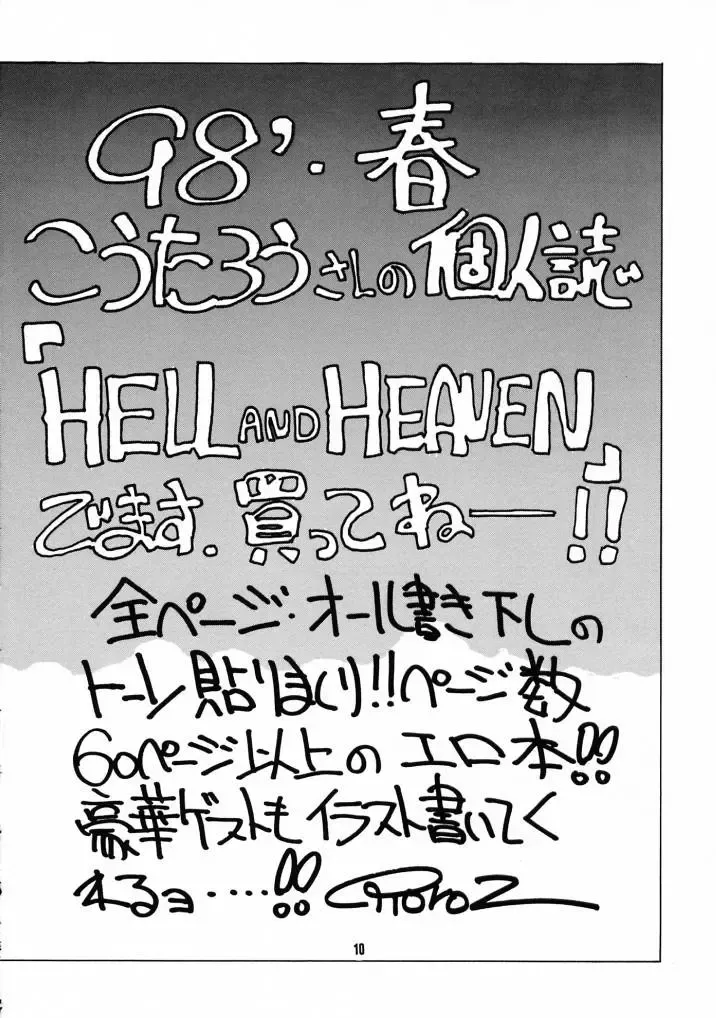 98'・春
こうたろうさんの個人誌
『HELL AND HEAVEN』
でます.買ってねー!!
全ページ・オール書き下しの
トーン貼りまくり!!ページ数
60ページ以上のエロ本!!
豪華ゲストもイラスト書いてく
れるヨ・・・・!!
10